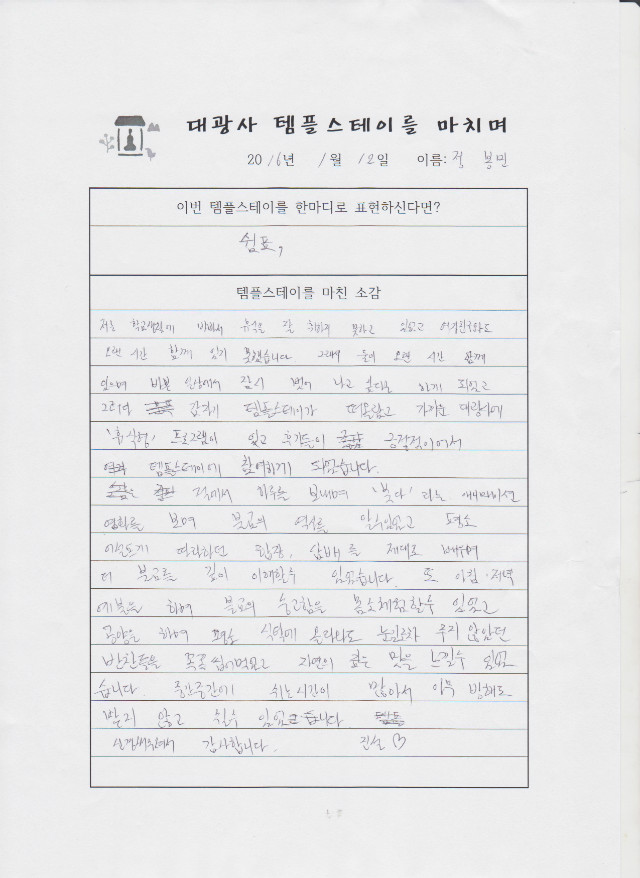 대광사 템플스테이를 마치며
2016년 1월 12일 이름: 정 봉민
이번 템플스테이를 한마디로 표현하신다면?
쉼표,
템플스테이를 마친 소감
저는 학교생활에 바빠서 휴식을 잘 취하지 못하고 있었고 여자친구와도
오랜 시간 함께 있지 못했습니다 그래서 둘이 오랜 시간 함께
있으며 바쁜 일상에서 잠시 벗어 나고 싶다는 하게 되었고
그러던 갑자기 템플스테이가 떠올랐고 가까운 대광사에
'휴식형' 프로그램이 있고 후기들이 긍정적이어서
템플스테이에 참여하게 되었습니다.
절에서 하루를 보내며 '붓다' 라는 애니메이션
영화를 보며 불교의 역사를 알 수 있었고 평소
어설프게 따라하던 합장, 삼배를 제대로 배우며
더 불교를 깊이 이해할수 있었습니다. 또 아침·저녁
예불을 하며 불교의 숭고함을 몸소체험할수 있었고
공양을 하며 평소 식탁에 올라와도 눈길조차 주지 않았던
반찬들을 꼭꼭 씹어먹고 자연이 주는 맛을 느낄수 있었
습니다. 중간중간에 쉬는시간이 많아서 아무 방해도
받지 않고 쉴수 있었습니다.
신경써주셔서 감사합니다. 진설 ♡